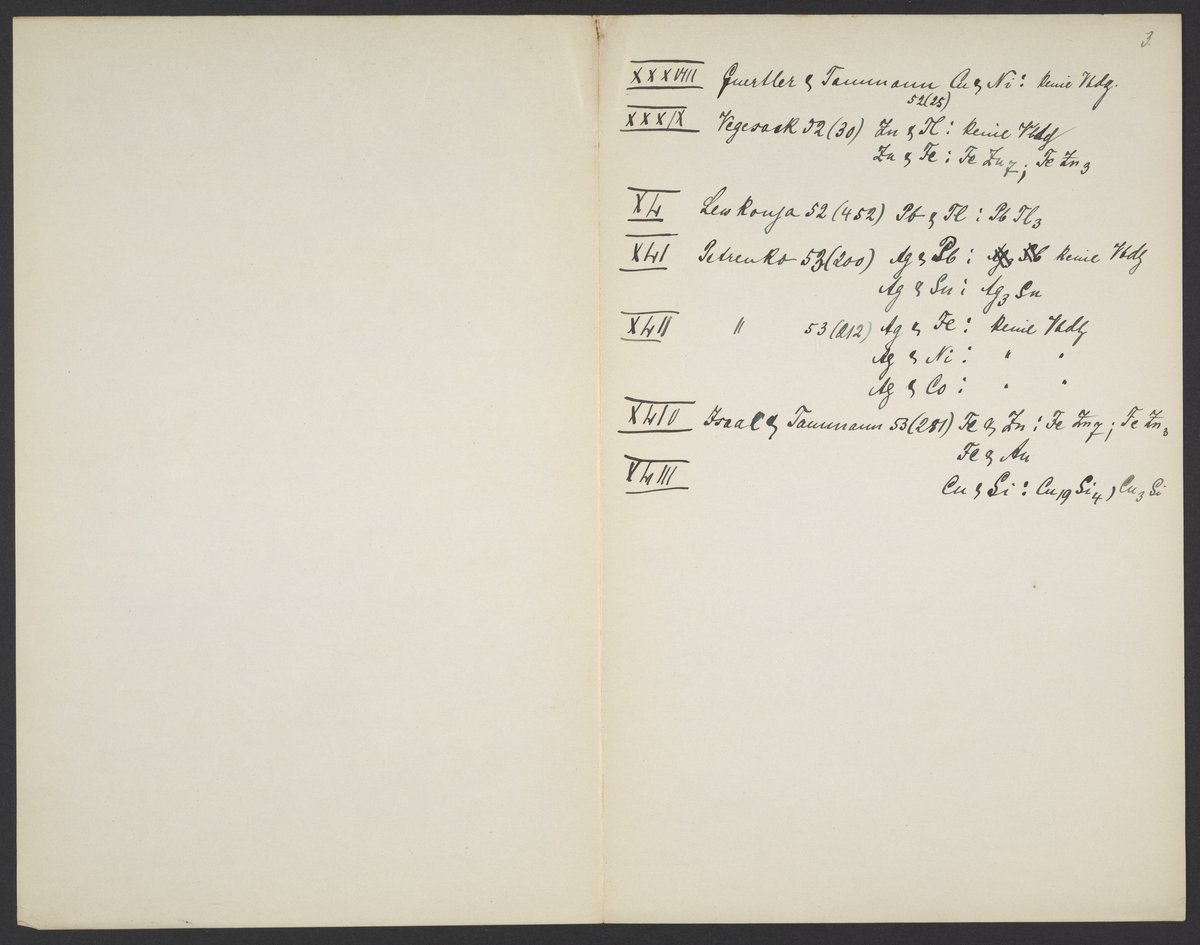 3.
XXXVIII Guertler & Tammann Cu & Ni: keine Vbdg.
52(25)
XXXIX Vegesack 52(30) Zn & Tl: keine Vbdg
Zn & Fe: FeZn7; FeZn3
XL Lewkonja 52(452) Pb & Tl: PbTl3
XLI Petrenko 53(200) Ag & Pb: keine Vbdg
Ag & Sn: Ag3Sn
XLII " 53(212) Ag & Fe: keine Vbdg
Ag & Ni: " "
Ag & Co: " "
XLIV Isaac & Tammann 53(281) Fe & Zn: FeZn7; FeZn3
Fe & Au
XLIII Cu & Si: Cu19Si4, Cu3Si